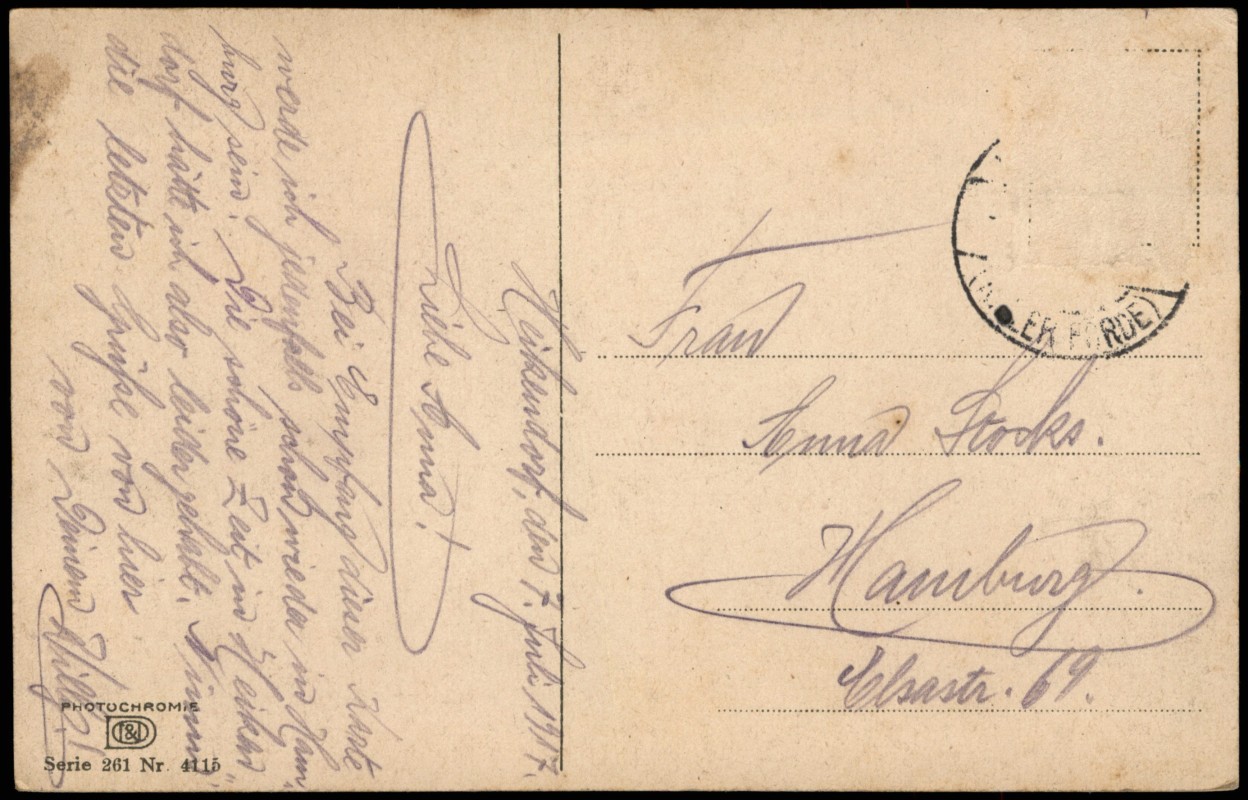 Heikendorf, den 7. Juli 1917.
Liebe Anna!
Bei Empfang dieser Karte
werde ich jedenfalls schon wieder in Ham-
burg sein. Die schöne Zeit in Heiken-
dorf hätte ich also leider gehabt. Nimm
die letzten Grüße von hier
von Deinem Willy!
PHOTOCHROMIE
T&D
Serie 261 Nr. 4115
(KIELER FÖRDE)
Frau
Anna Stocks.
Hamburg.
Elsastr. 69.